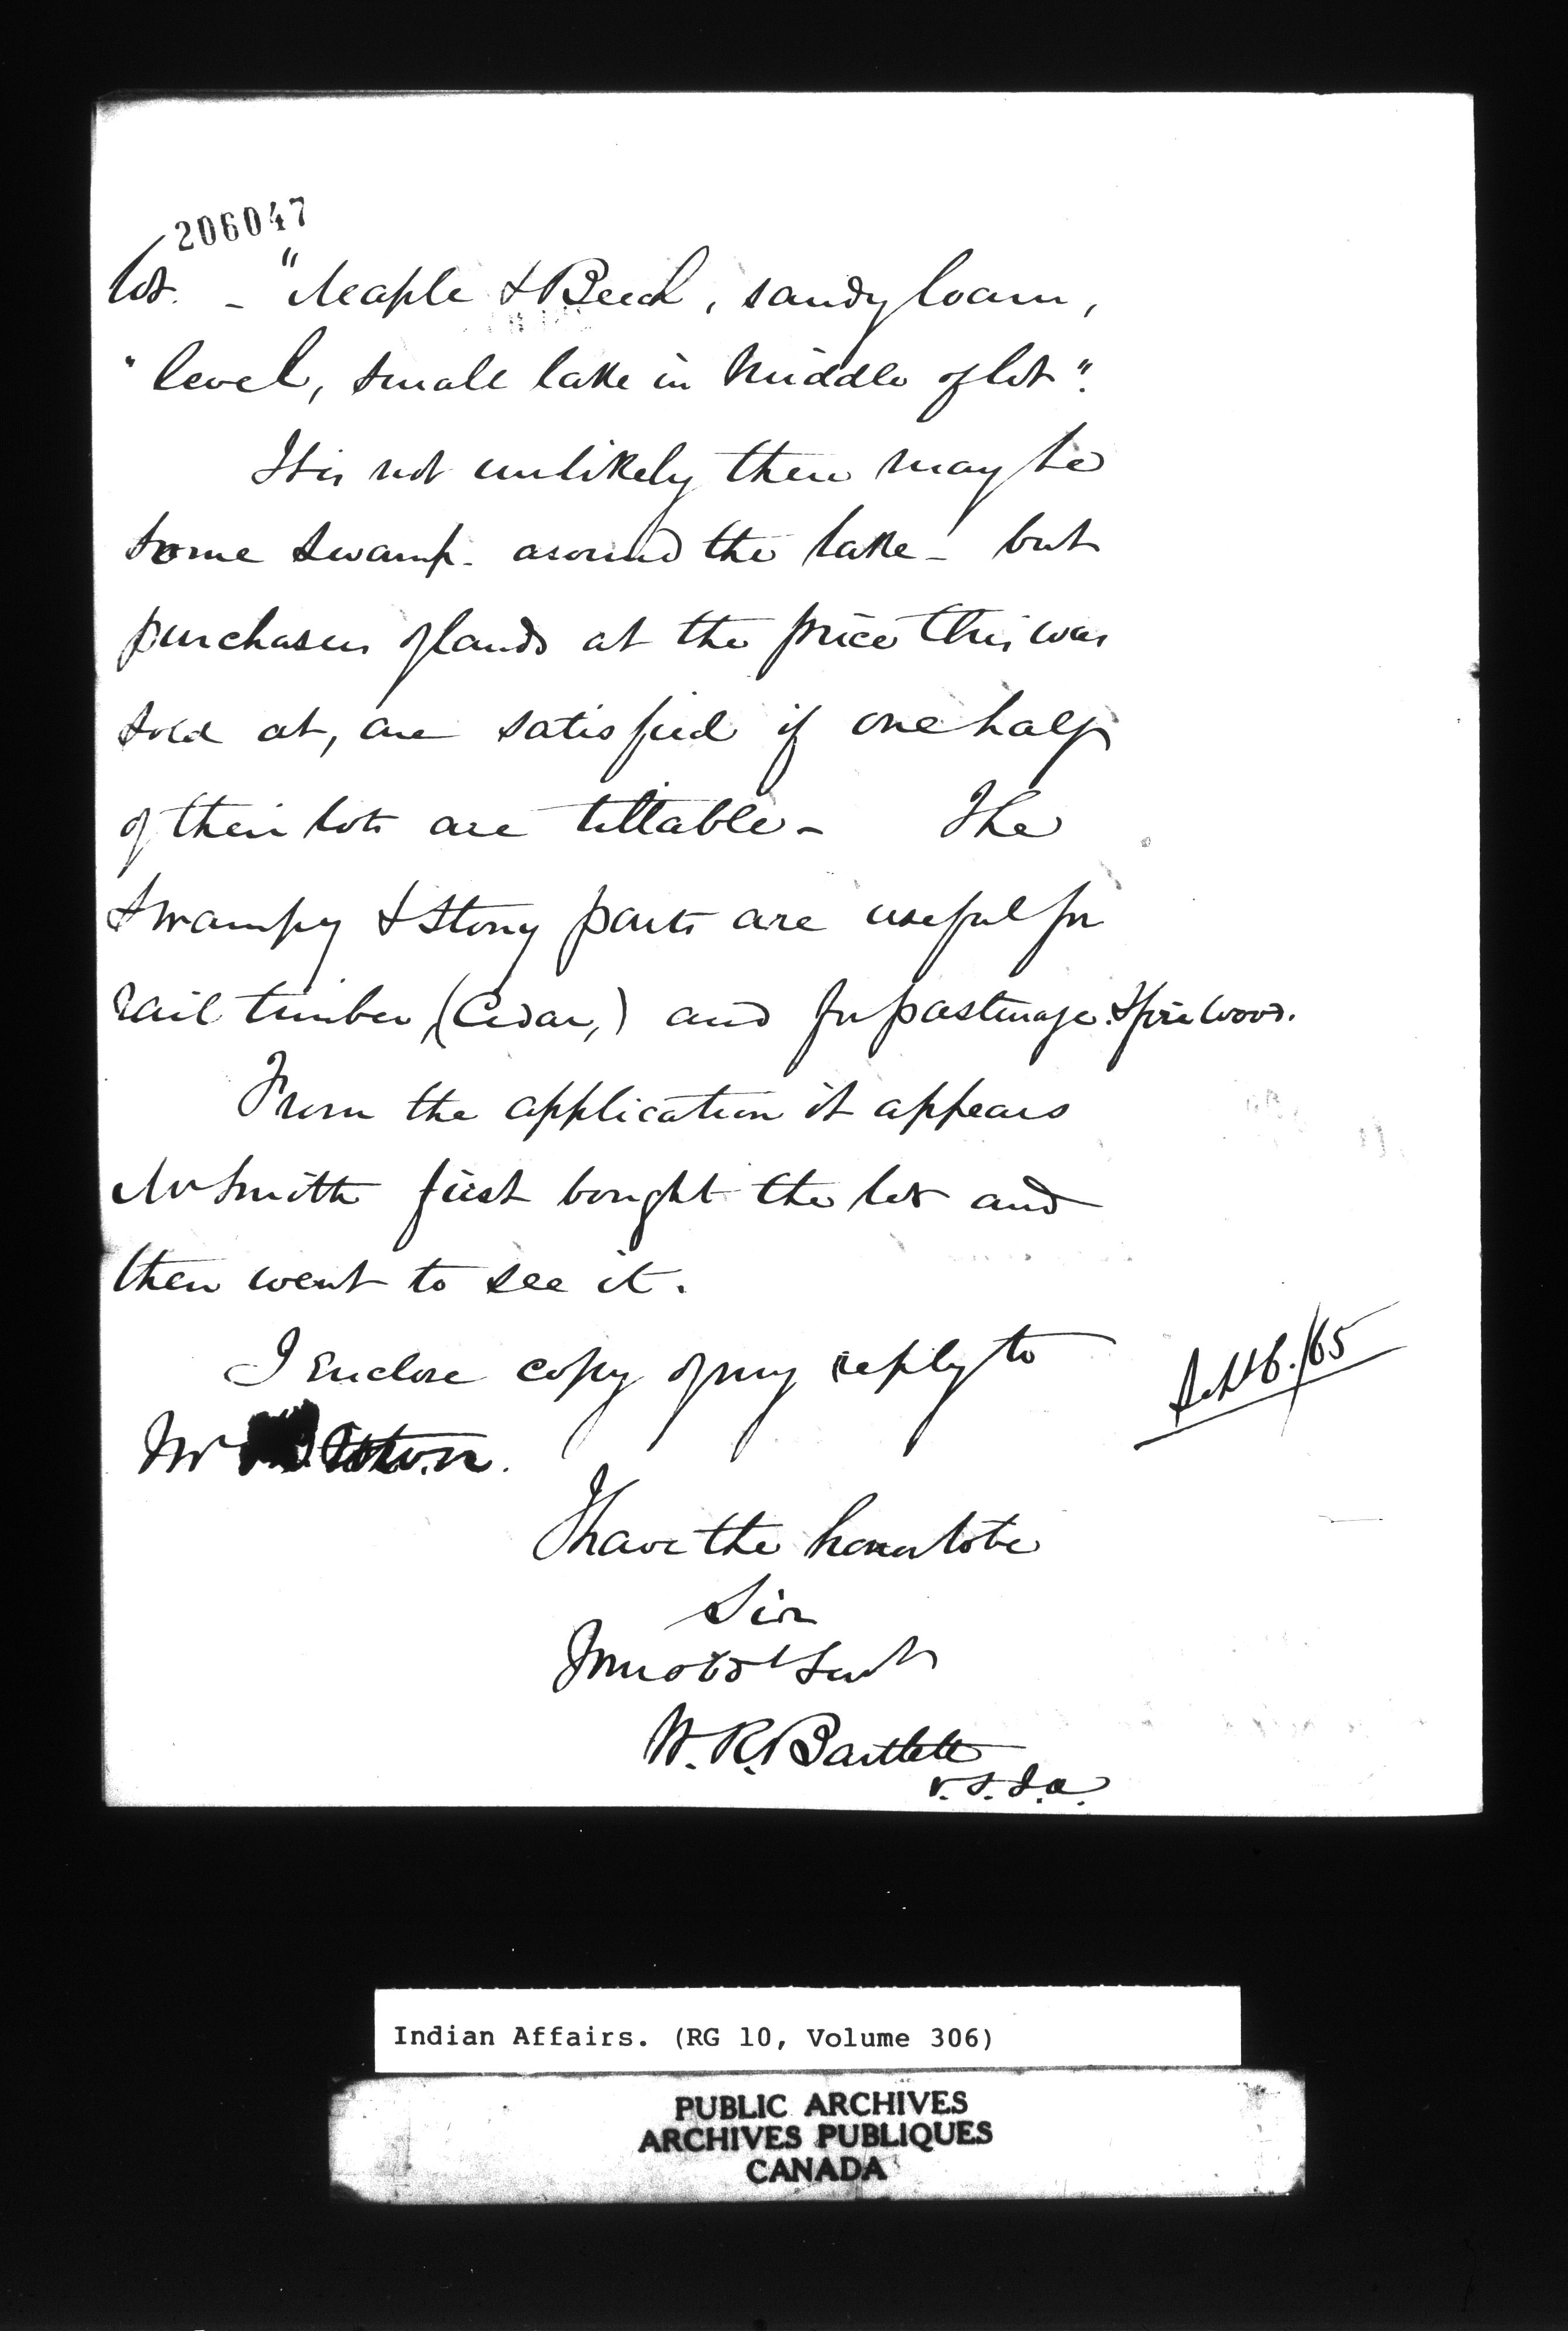 206047
lot. – "Maple & Beech, sandy loam,
" level, small lake in middle of lot".
It is not unlikely there may be
some swamp. around the lake – but
purchasers of lands at the price this was
sold at, are satisfied if one half
of their lots are tillable – The
swampy & stony parts are useful for
rail timber (Cedar,) and for pasturage. & fire wood.
From the application it appears
Mr Smith first bought the lot and
then went to see it.
I enclose copy of my reply to
Mr
Sept 6./65
I have the honor to be
Sir
Yr mo obdt Servt
W. R. Bartlett
V.S.I.A.
Indian Affairs. (RG 10, Volume 306)
PUBLIC ARCHIVES
ARCHIVES PUBLIQUES
CANADA